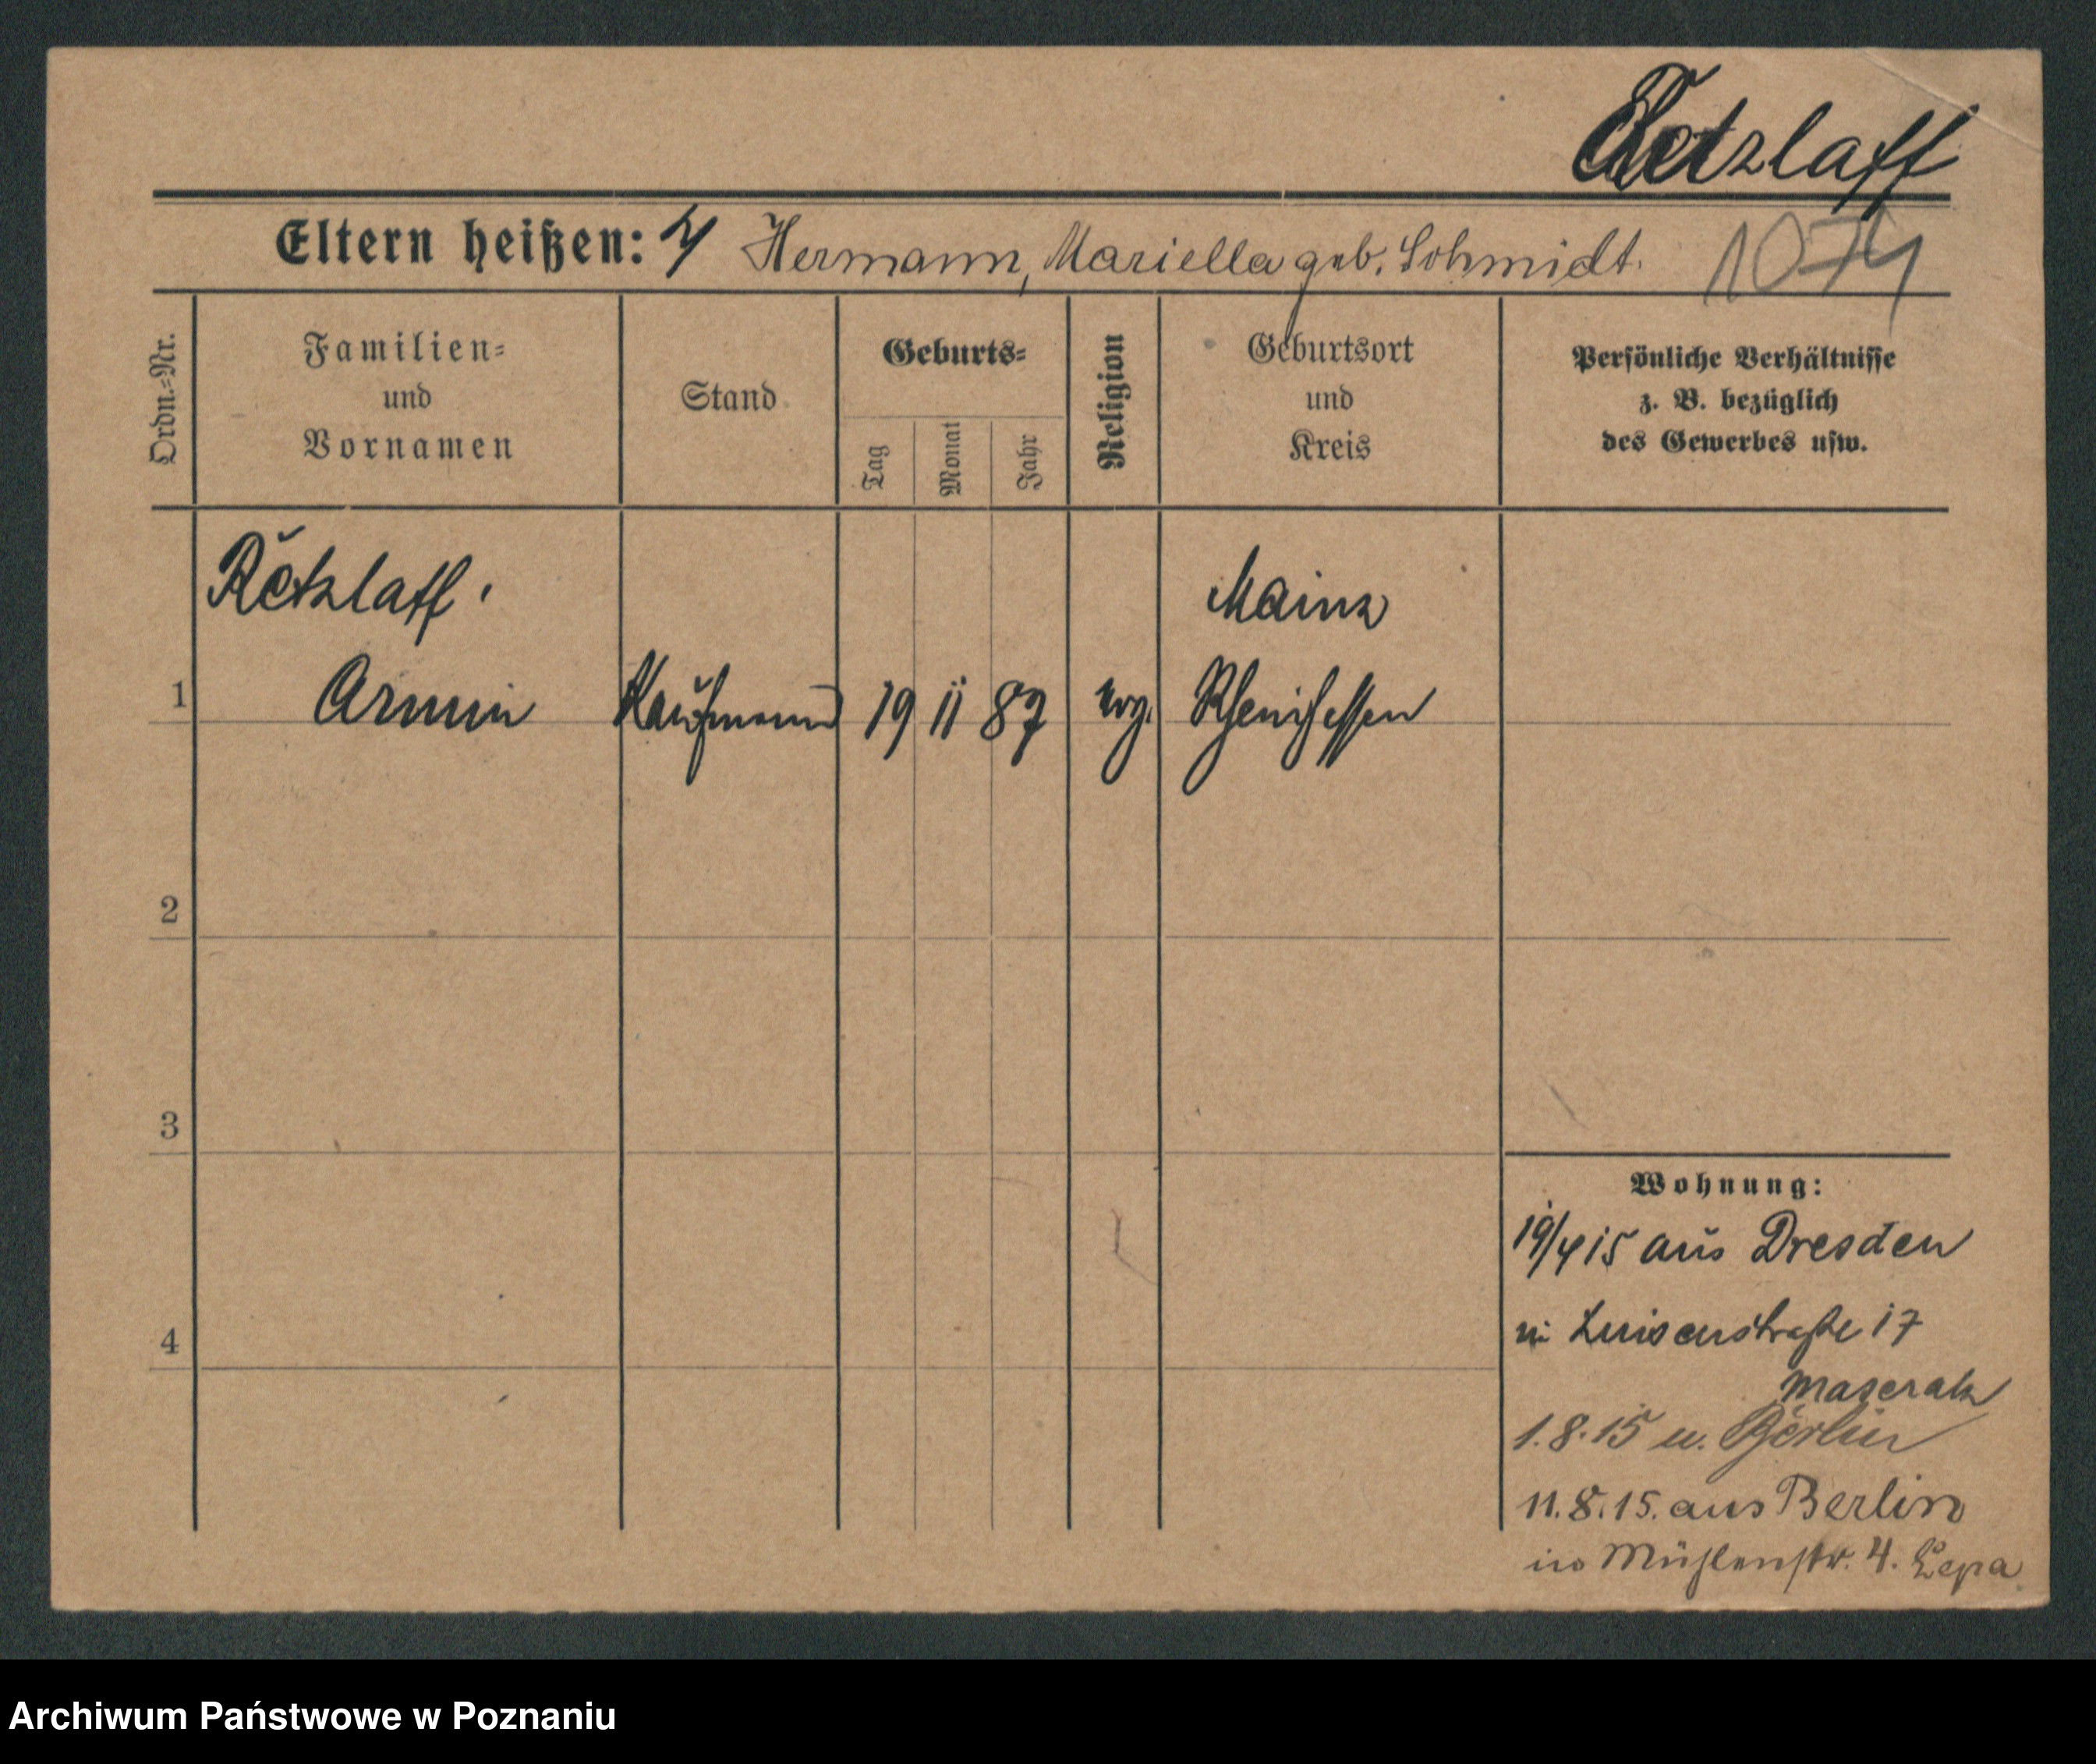 Retzlaff
Eltern heißen: Hermann, Mariella geb. Schmidt.
1074
Ordn.-Nr.
Familien-
und
Vornamen
Stand
Geburts-
Tag
Monat
Jahr
Religion
Geburtsort
und
Kreis
Persönliche Verhältnisse
z. B. bezüglich
des Gewerbes usw.
Retzlaff.
Mainz
1 Armin Kaufmann 19 11 87 evg. Rheinhessen
2
3
Wohnung:
19/4 15 aus Dresden
in Luisenstraße 17
4
Maserak
1.8.15 n. Berlin
11.8.15. aus Berlin
in Mühlenstr. 4. Lepa
Archiwum Państwowe w Poznaniu